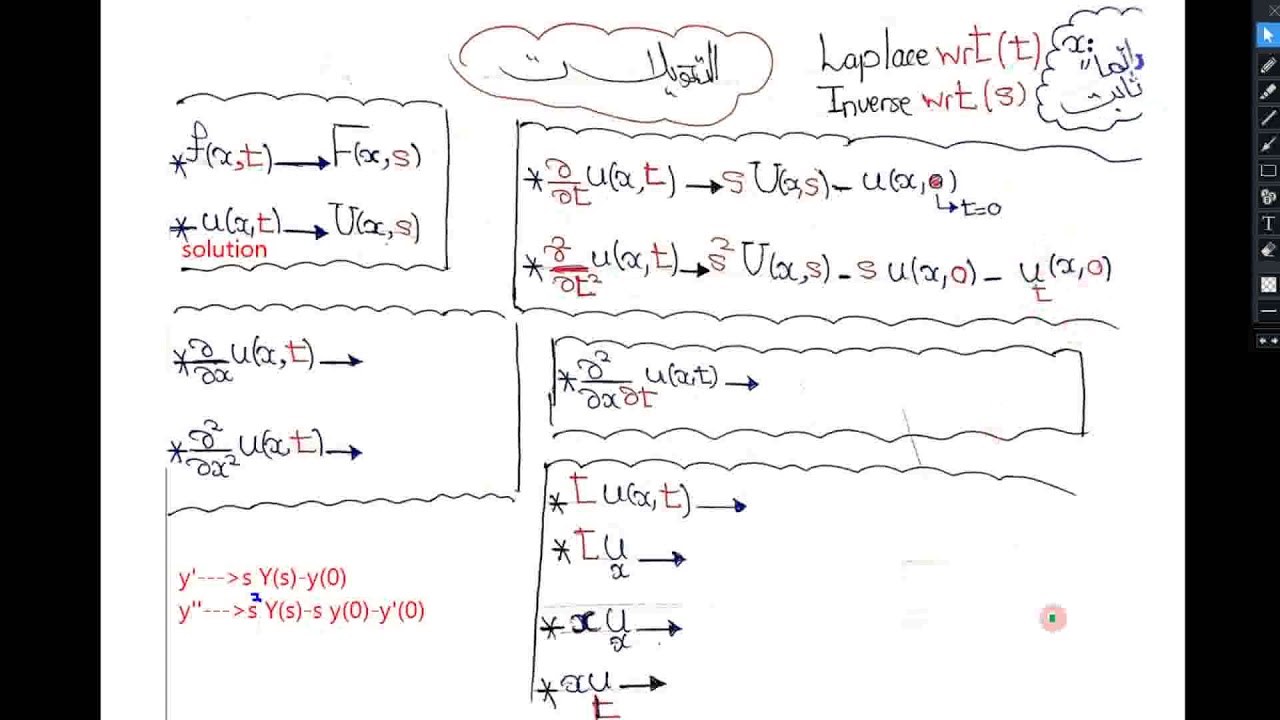 التحويلات
Laplace wrt (t)
Inverse wrt (s)
x:
دائما"
ثابت
* f(x,t) → F(x,s)
* u(x,t) → U(x,s)
solution
* ∂/∂t u(x,t) → s U(x,s) - u(x,0)
↳ t=0
* ∂²/∂t² u(x,t) → s² U(x,s) - s u(x,0) - u_t(x,0)
* ∂/∂x u(x,t) →
* ∂²/∂x² u(x,t) →
* ∂²/∂x∂t u(x,t) →
* t u(x,t) →
* t u_x →
* x u_x →
* x u_t →
y'--->s Y(s)-y(0)
y''--->s² Y(s)-s y(0)-y'(0)
T